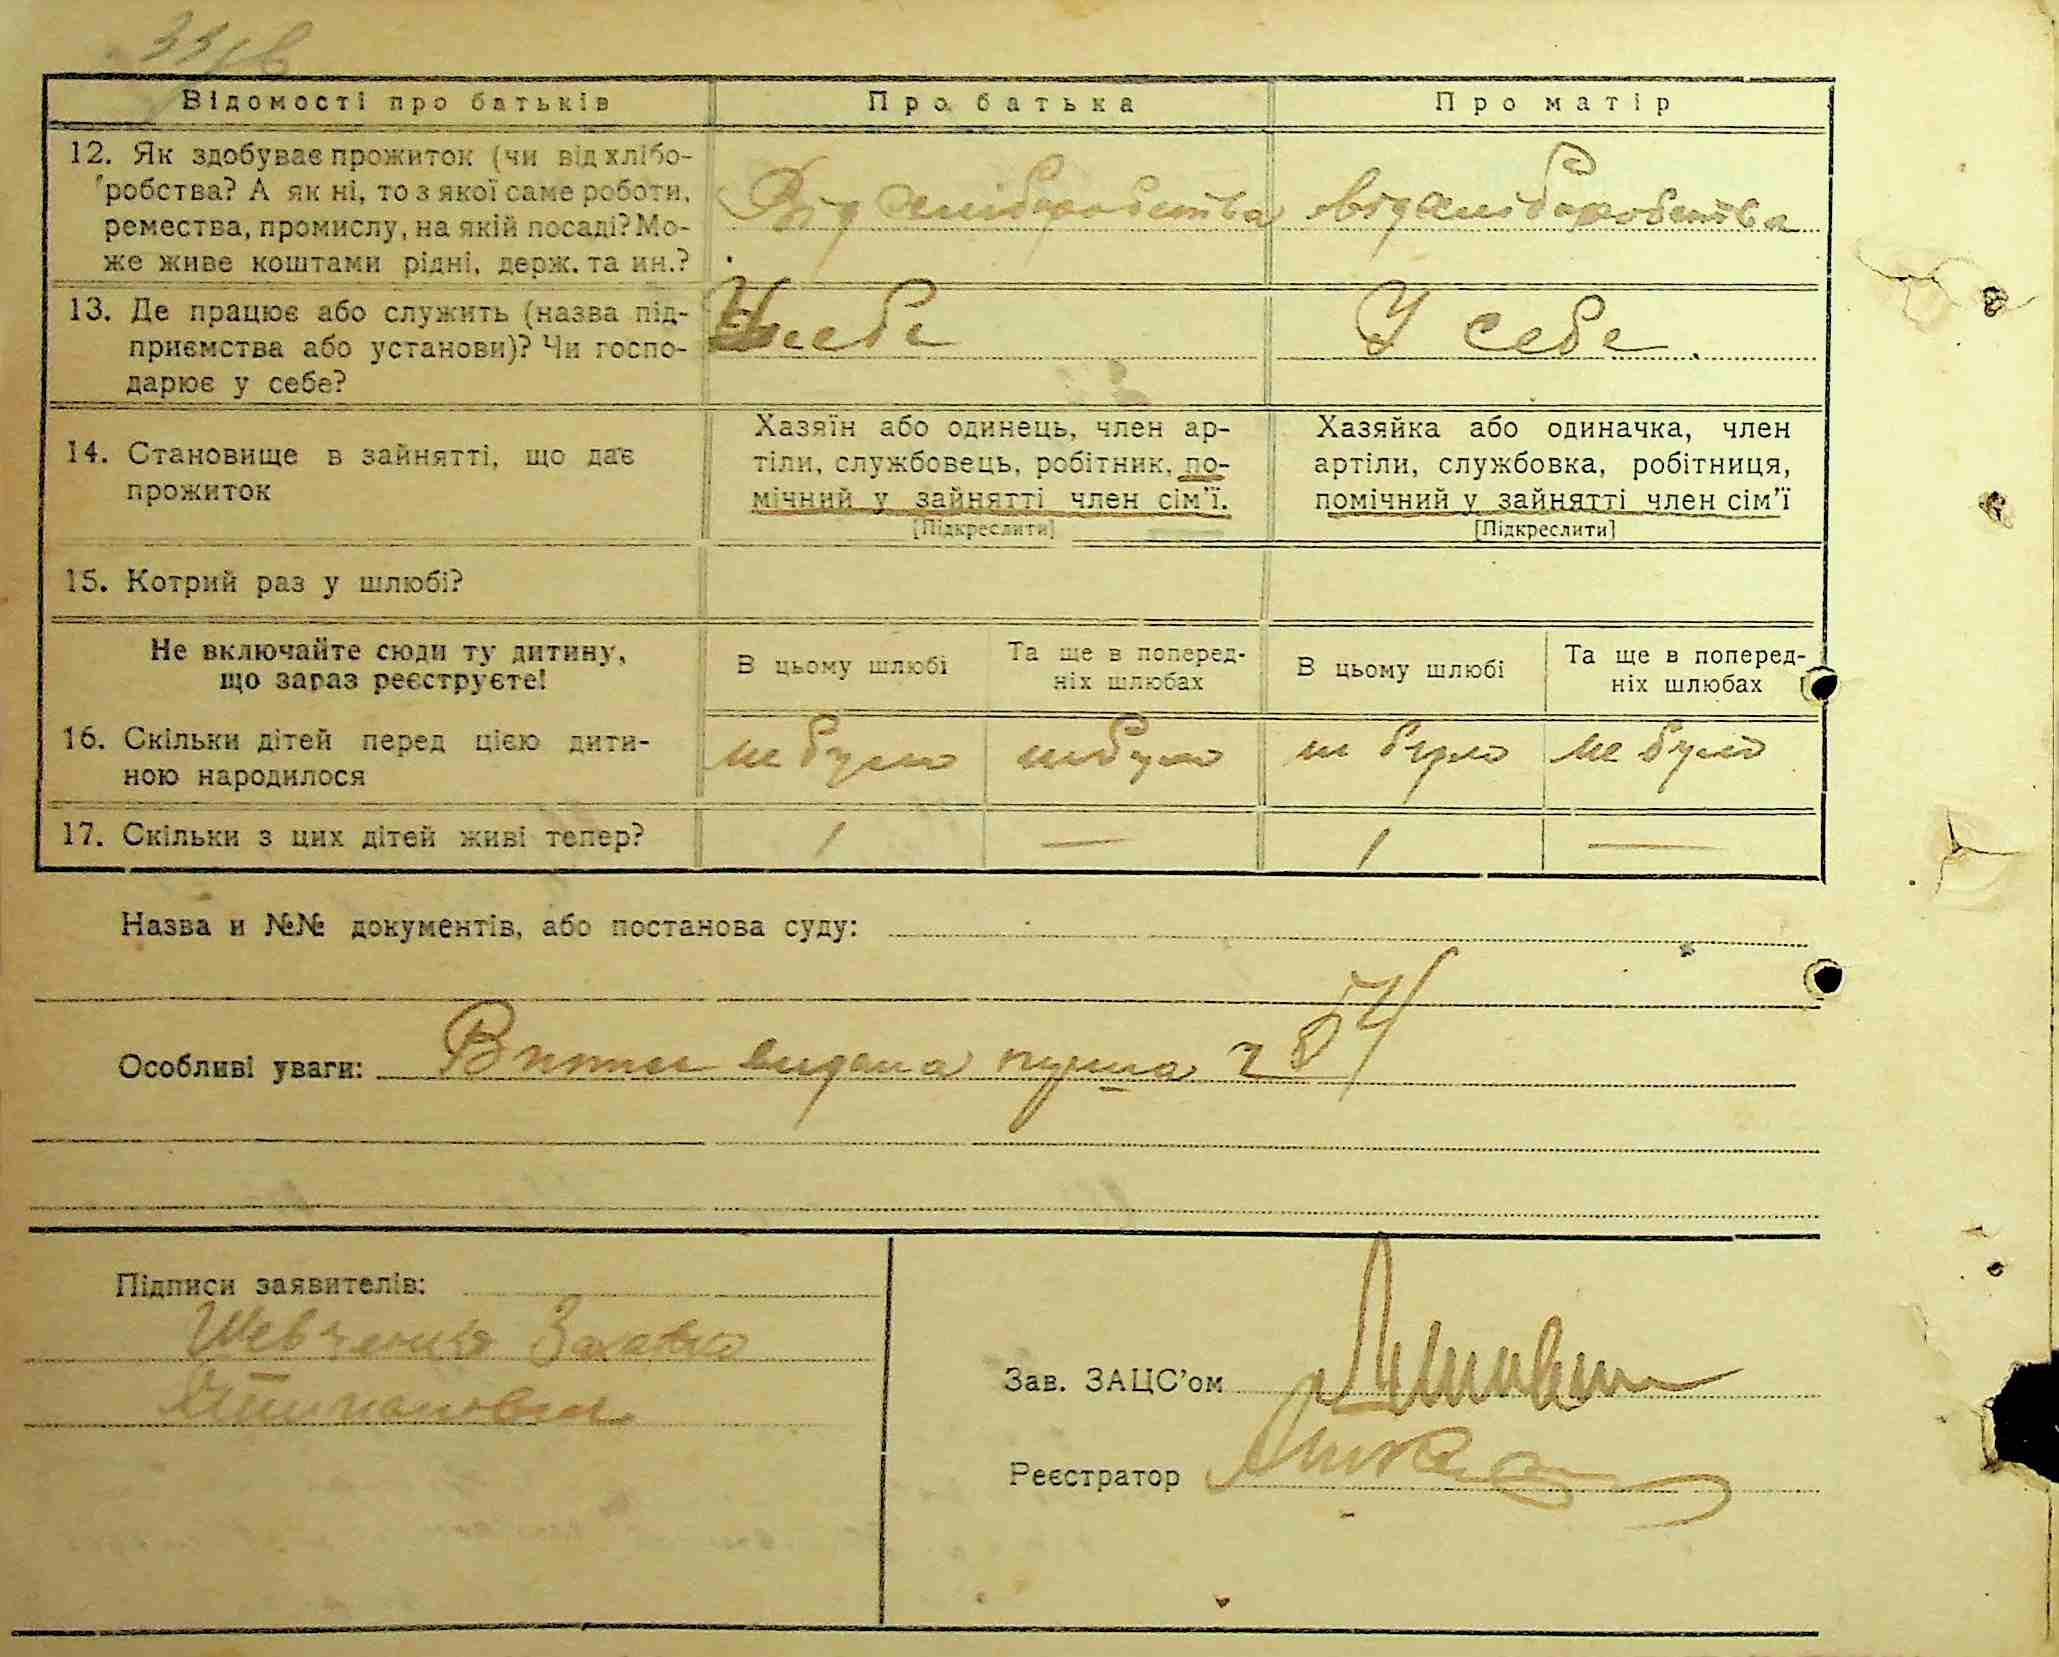 Відомості про батьків Про батька Про матір
12. Як здобуває прожиток (чи від хлібо-
робства? А як ні, то з якої саме роботи,
ремества, промислу, на якій посаді? Мо-
же живе коштами рідні, держ. та ин.?
Від хліборобства від хліборобства
13. Де працює або служить (назва під-
приємства або установи)? Чи госпо-
дарює у себе?
У себе У себе
14. Становище в зайнятті, що дає
прожиток
Хазяїн або одинець, член ар-
тіли, службовець, робітник, по-
мічний у зайнятті член сім'ї.
[Підкреслити]
Хазяйка або одиначка, член
артіли, службовка, робітниця,
помічний у зайнятті член сім'ї
[Підкреслити]
15. Котрий раз у шлюбі?
Не включайте сюди ту дитину,
що зараз реєструєте!
В цьому шлюбі
Та ще в поперед-
ніх шлюбах
В цьому шлюбі
Та ще в поперед-
ніх шлюбах
16. Скільки дітей перед цією дити-
ною народилося
не було не було не було не було
17. Скільки з цих дітей живі тепер?
/ — / —
Назва и №№ документів, або постанова суду:
Особливі уваги: видана
Підписи заявителів:
Шевченко
Зав. ЗАЦС'ом
Реєстратор